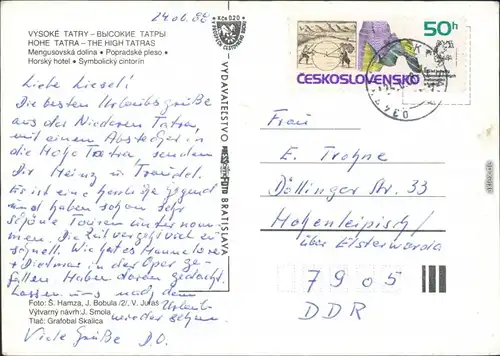 24.06.88
Kčs 0,20
VYSOKÉ TATRY – ВЫСОКИЕ ТАТРЫ
HOHE TATRA – THE HIGH TATRAS
Mengusovská dolina • Popradské pleso •
Horský hotel • Symbolický cintorín
50h
ČESKOSLOVENSKO
VYDAVATEĽSTVO
BRATISLAVA
Liebe Liesel!
Die besten Urlaubsgrüße
aus der Niederen Tatra,
mit einem Abstecher in
die Hohe Tatra, senden
Dir Heinz u. Traudel.
Es ist eine herrliche Gegend
und haben schon sehr
schöne Touren unternom
men. Die Zeit vergeht viel zu
schnell. Wie hat es Hannelore
+ Dietmar in der Oper ge-
fallen. Haben daran gedacht.
Lassen uns nach dem
Urlaub
wieder sehen.
Viele Grüße D.O.
Foto: Š. Hamza, J. Bobula /2/, V. Juráš
Výtvarný návrh: J. Smola
Tlač: Grafobal Skalica
Frau
E. Trohne
Döllinger Str. 33
Hohenleipisch
über Elsterwerda
7905
DDR